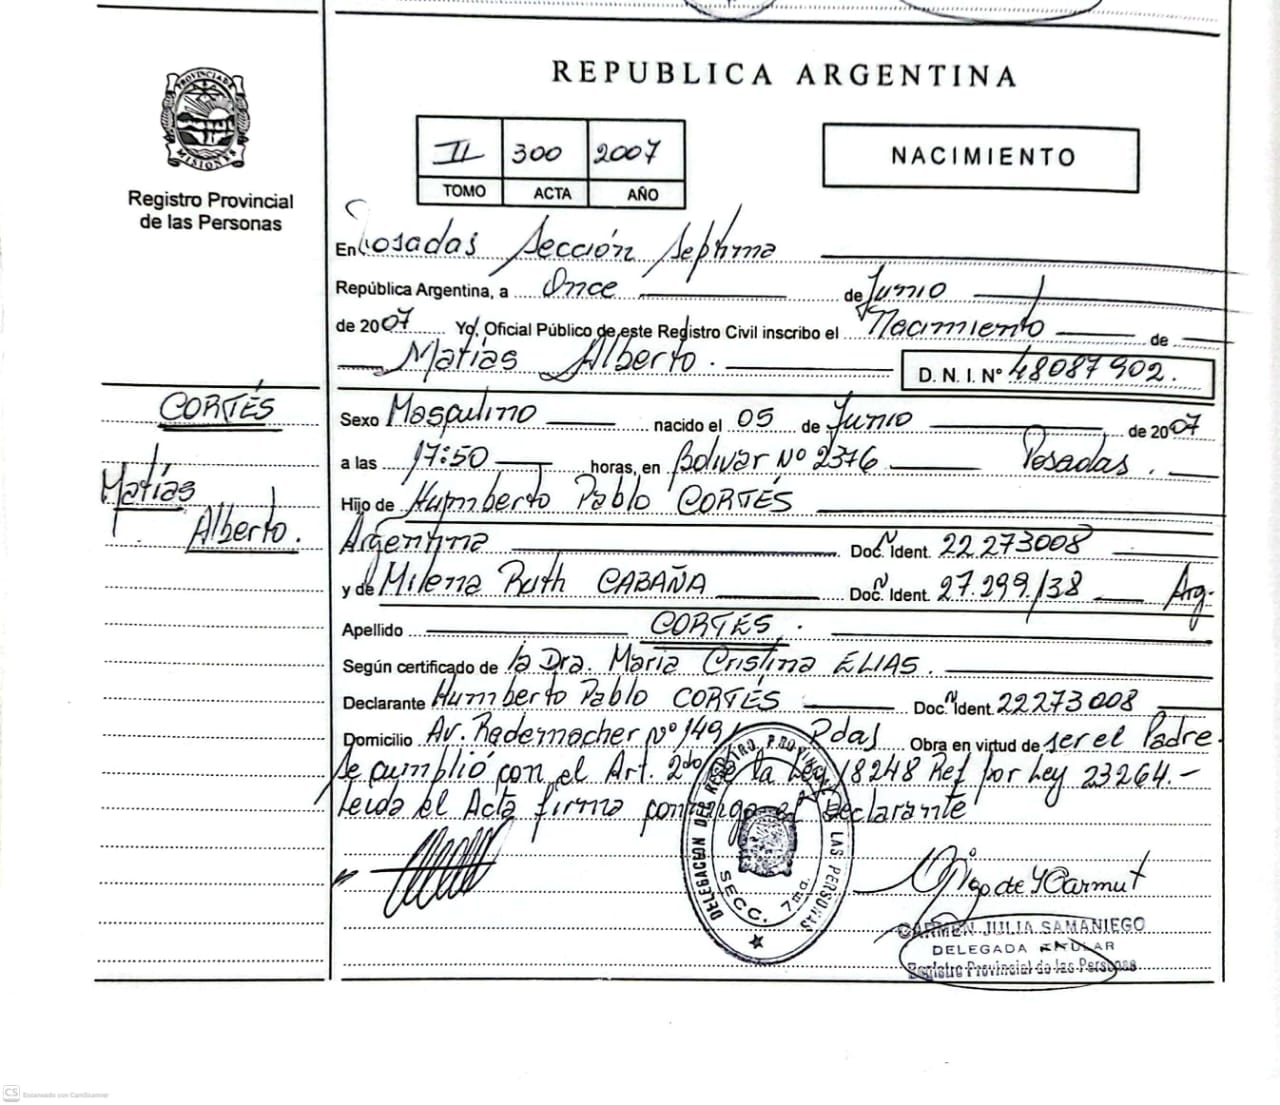 REPUBLICA ARGENTINA
PROVINCIA DE MISIONES
Registro Provincial
de las Personas
II 300 2007
TOMO ACTA AÑO
NACIMIENTO
En Posadas Sección Séptima
República Argentina, a Once de Junio
de 2007 Yo, Oficial Público de este Registro Civil inscribo el Nacimiento de
Matías Alberto. D. N. I. Nº 48087902.
CORTÉS
Matías
Alberto.
Sexo Masculino nacido el 05 de Junio de 2007
a las 17:50 horas, en Bolívar Nº 2376 Posadas.
Hijo de Humberto Pablo CORTÉS
Argentina Doc. Ident. 22.273008
y de Milena Ruth CABAÑA Doc. Ident. 27.299.138 Arg.
Apellido CORTÉS.
Según certificado de la Dra. María Cristina ELIAS.
Declarante Humberto Pablo CORTÉS Doc. Ident. 22273008
Domicilio Av. Rademacher Nº 149 Pdas Obra en virtud de ser el Padre.
Se cumplió con el Art. 2do de la Ley 18248 Ref por Ley 23264.-
Leída el Acta firma conmigo el Declarante
DELEGACION DEL REGISTRO PROVINCIAL DE LAS PERSONAS
SECC. 7ma.
CARMEN JULIA SAMANIEGO
DELEGADA TITULAR
Registro Provincial de las Personas
CS Escaneado con CamScanner